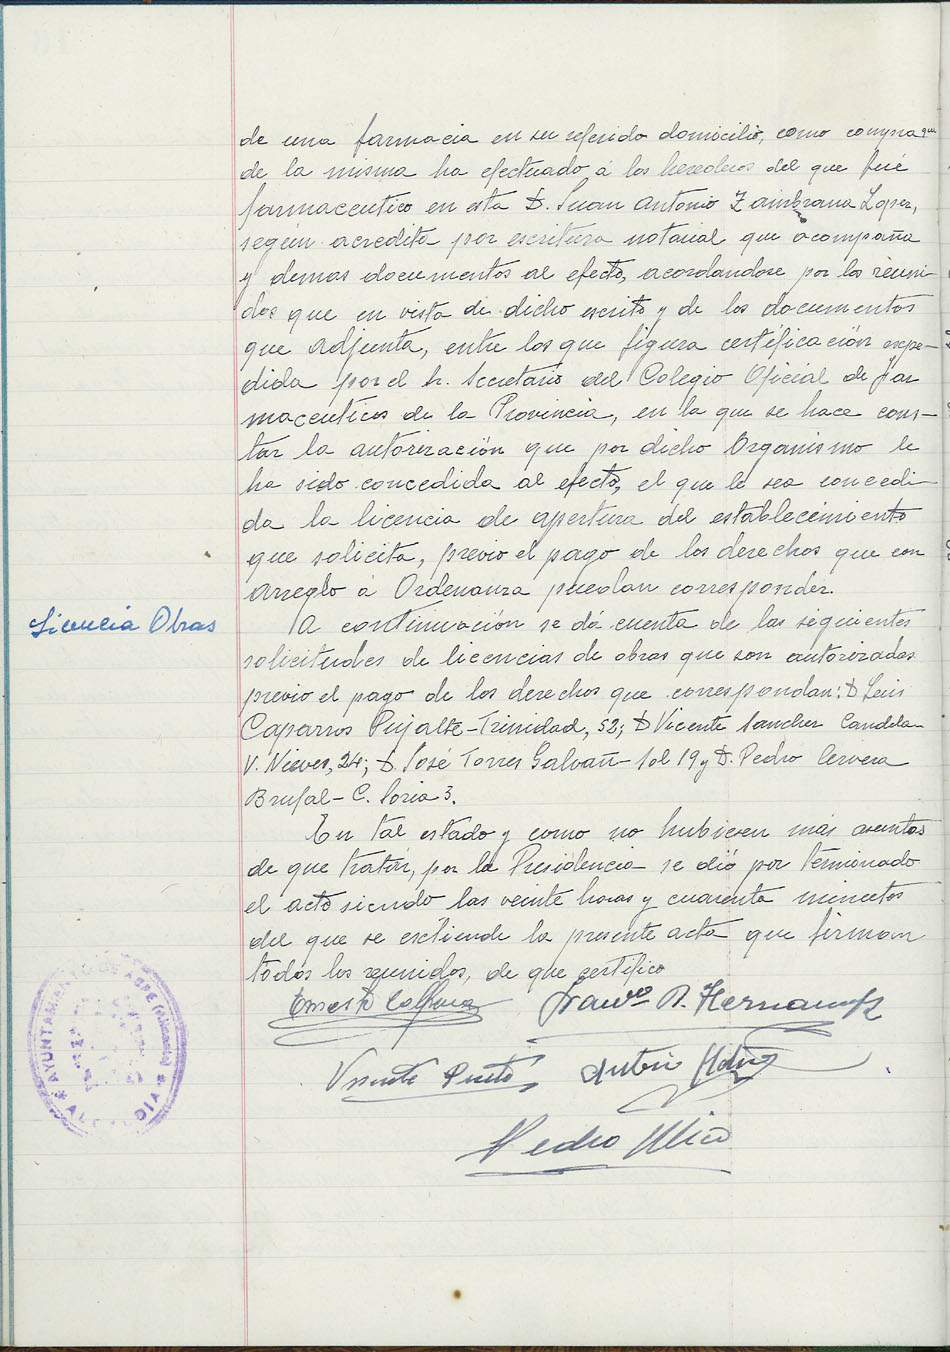 de una farmacia en su referido domicilio, como compra que
de la misma ha efectuado á los herederos del que fué
farmaceutico en esta D. Juan Antonio Zambrana Lopez,
según acredita por escritura notarial que acompaña
y demas documentos al efecto, acordandose por los reuni-
dos que en vista de dicho escrito y de los documentos
que adjunta, entre los que figura certificación expe-
dida por el Sr. Secretario del Colegio Oficial de Far
maceuticos de la Provincia, en la que se hace cons-
tar la autorización que por dicho Organismo le
ha sido concedida al efecto, el que le sea concedi-
da la licencia de apertura del establecimiento
que solicita, previo el pago de los derechos que con
arreglo á Ordenanza puedan corresponder.
Licencia Obras
A continuación se dá cuenta de las siguientes
solicitudes de licencias de obras que son autorizadas
previo el pago de los derechos que correspondan: D Luis
Caparros Pujalte-Trinidad, 52; D Vicente Sanchez Candela-
V. Nieves, 24; D. José Torres Galvañ- Sol 19 y D. Pedro Cervera
Brufal- C. Soria 3.
En tal estado y como no hubiesen más asuntos
de que tratar, por la Presidencia se dió por terminado
el acto siendo las veinte horas y cuarenta minutos
del que se extiende la presente acta que firman
todos los reunidos, de que certifico
Franco B. Hernandez
Vicente Prieto
Antonio
Pedro Mico
AYUNTAMIENTO DE ASPE (Alicante)
ALCALDIA